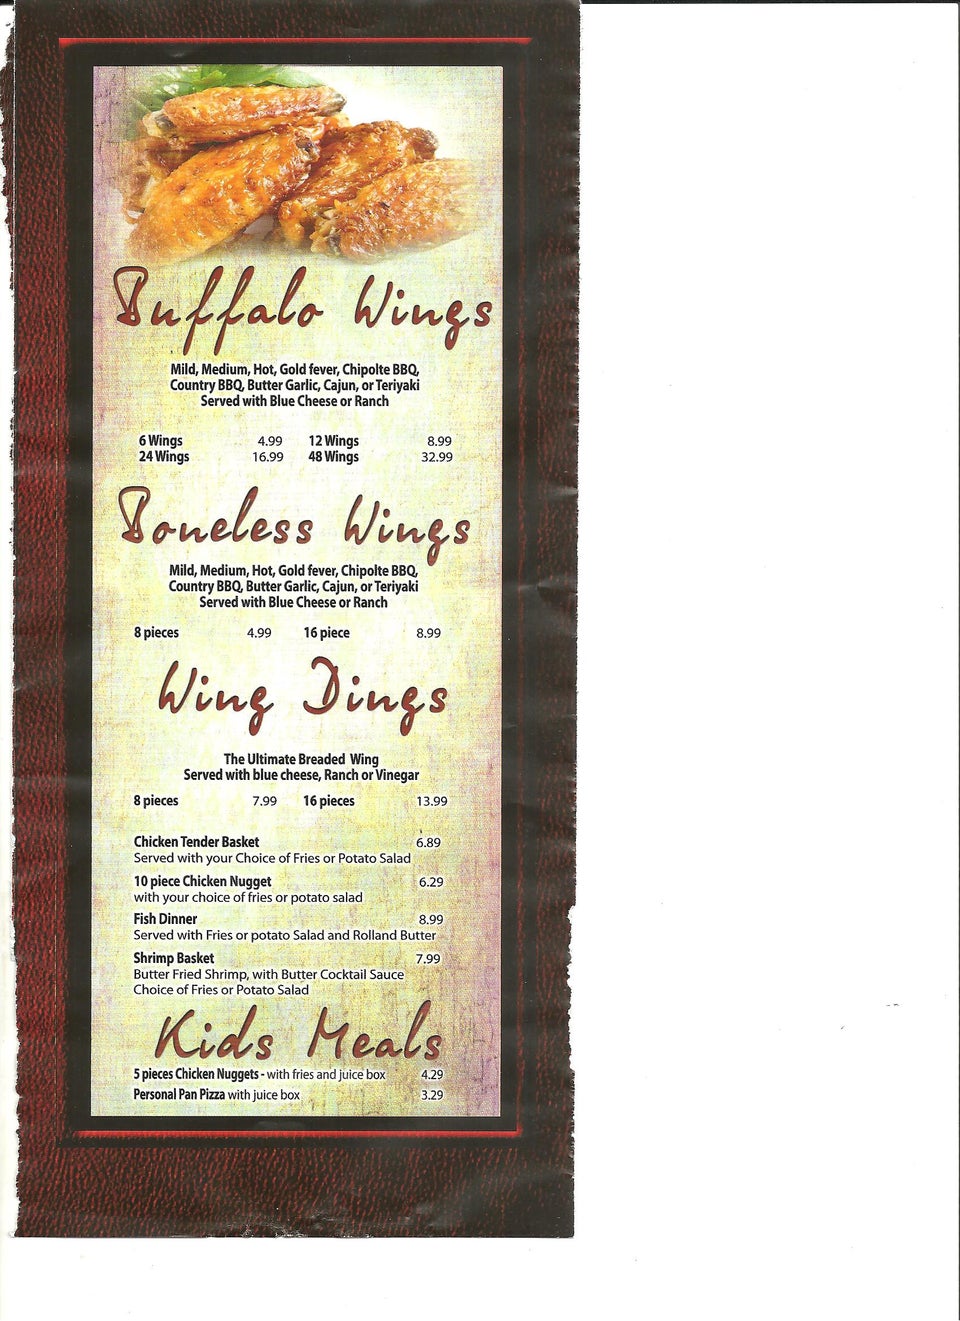 Buffalo Wings
Mild, Medium, Hot, Gold fever, Chipolte BBQ,
Country BBQ, Butter Garlic, Cajun, or Teriyaki
Served with Blue Cheese or Ranch
6 Wings 4.99 12 Wings 8.99
24 Wings 16.99 48 Wings 32.99
Boneless Wings
Mild, Medium, Hot, Gold fever, Chipolte BBQ,
Country BBQ, Butter Garlic, Cajun, or Teriyaki
Served with Blue Cheese or Ranch
8 pieces 4.99 16 piece 8.99
Wing Dings
The Ultimate Breaded Wing
Served with blue cheese, Ranch or Vinegar
8 pieces 7.99 16 pieces 13.99
Chicken Tender Basket 6.89
Served with your Choice of Fries or Potato Salad
10 piece Chicken Nugget 6.29
with your choice of fries or potato salad
Fish Dinner 8.99
Served with Fries or potato Salad and Rolland Butter
Shrimp Basket 7.99
Butter Fried Shrimp, with Butter Cocktail Sauce
Choice of Fries or Potato Salad
Kids Meals
5 pieces Chicken Nuggets - with fries and juice box 4.29
Personal Pan Pizza with juice box 3.29